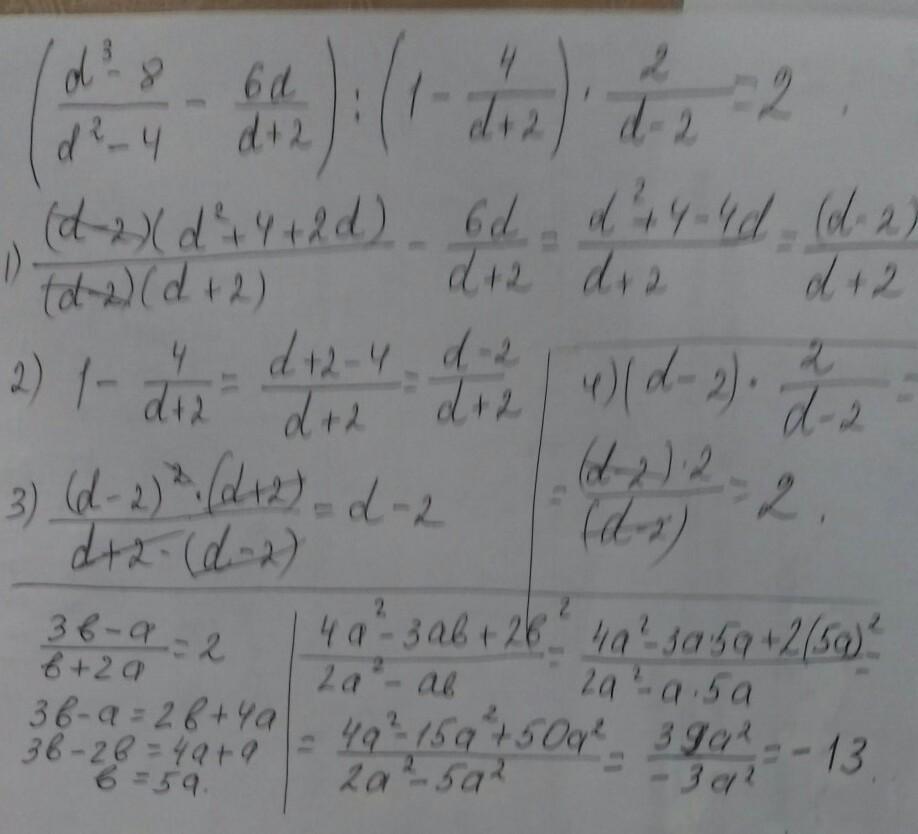 (d³-8/d²-4 - 6d/d+2) : (1 - 4/d+2) · 2/d-2 = 2.
1) (d-2)(d²+4+2d)/(d-2)(d+2) - 6d/d+2 = d²+4-4d/d+2 = (d-2)/d+2
2) 1 - 4/d+2 = d+2-4/d+2 = d-2/d+2
3) (d-2)²·(d+2)/d+2·(d-2) = d-2
4) (d-2)· 2/d-2 =
= (d-2)·2/(d-2) = 2.
3в-a/в+2a = 2
3в-a = 2в+4a
3в-2в = 4a+a
в = 5a.
4a²-3aв+2в²/2a²-aв = 4a²-3a·5a+2(5a)²/2a²-a·5a =
= 4a²-15a²+50a²/2a²-5a² = 39a²/-3a² = -13.